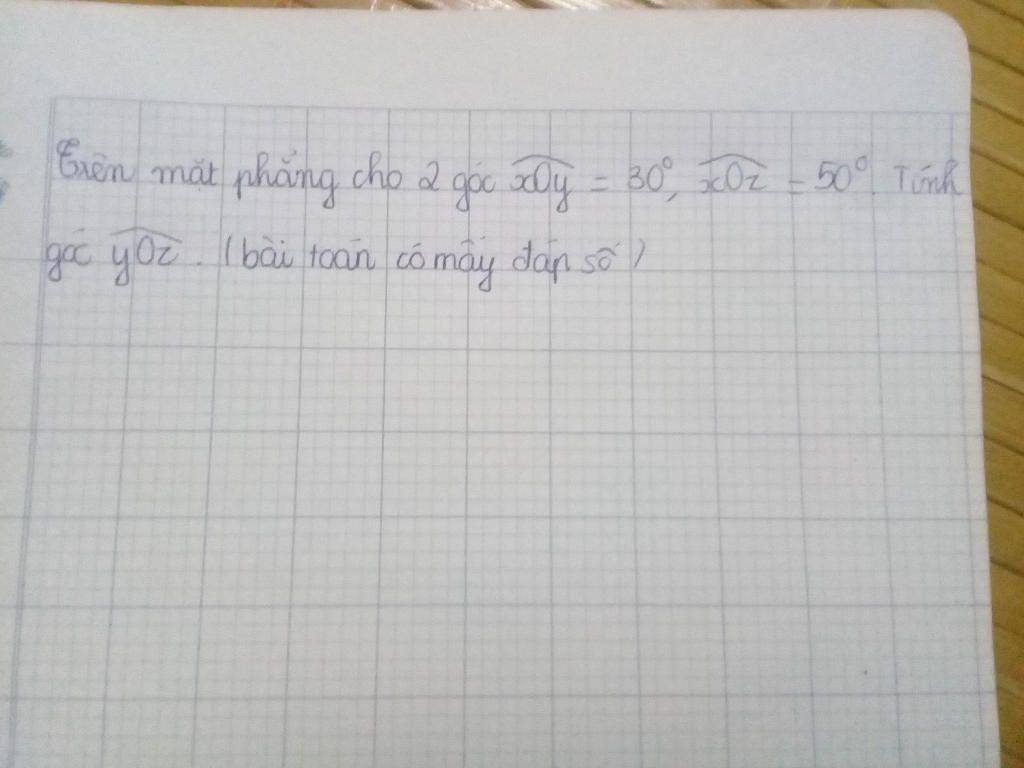 Trên mặt phẳng cho 2 góc xOy = 30°, xOz = 50°. Tính
góc yOz. (bài toán có mấy đáp số)